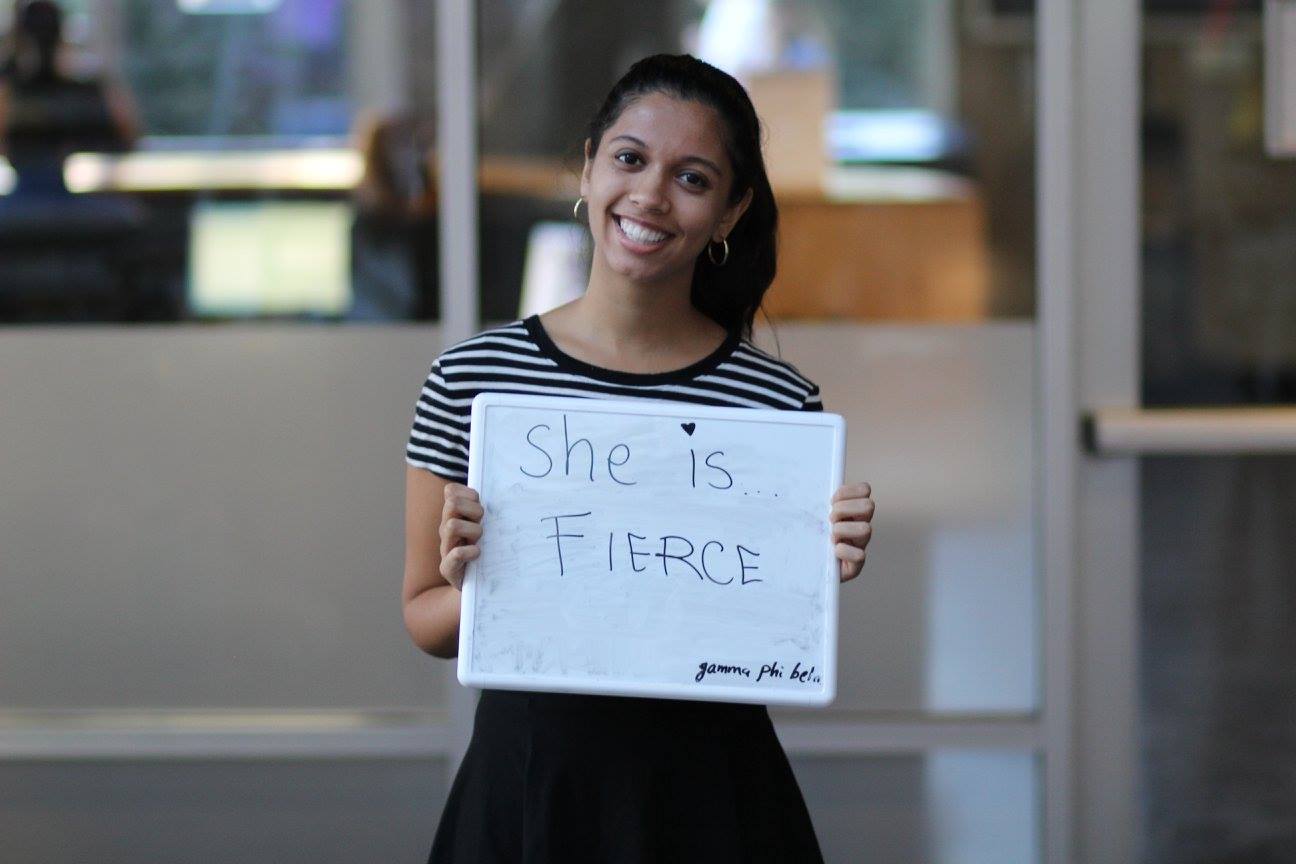 She is...
FIERCE
gamma phi beta